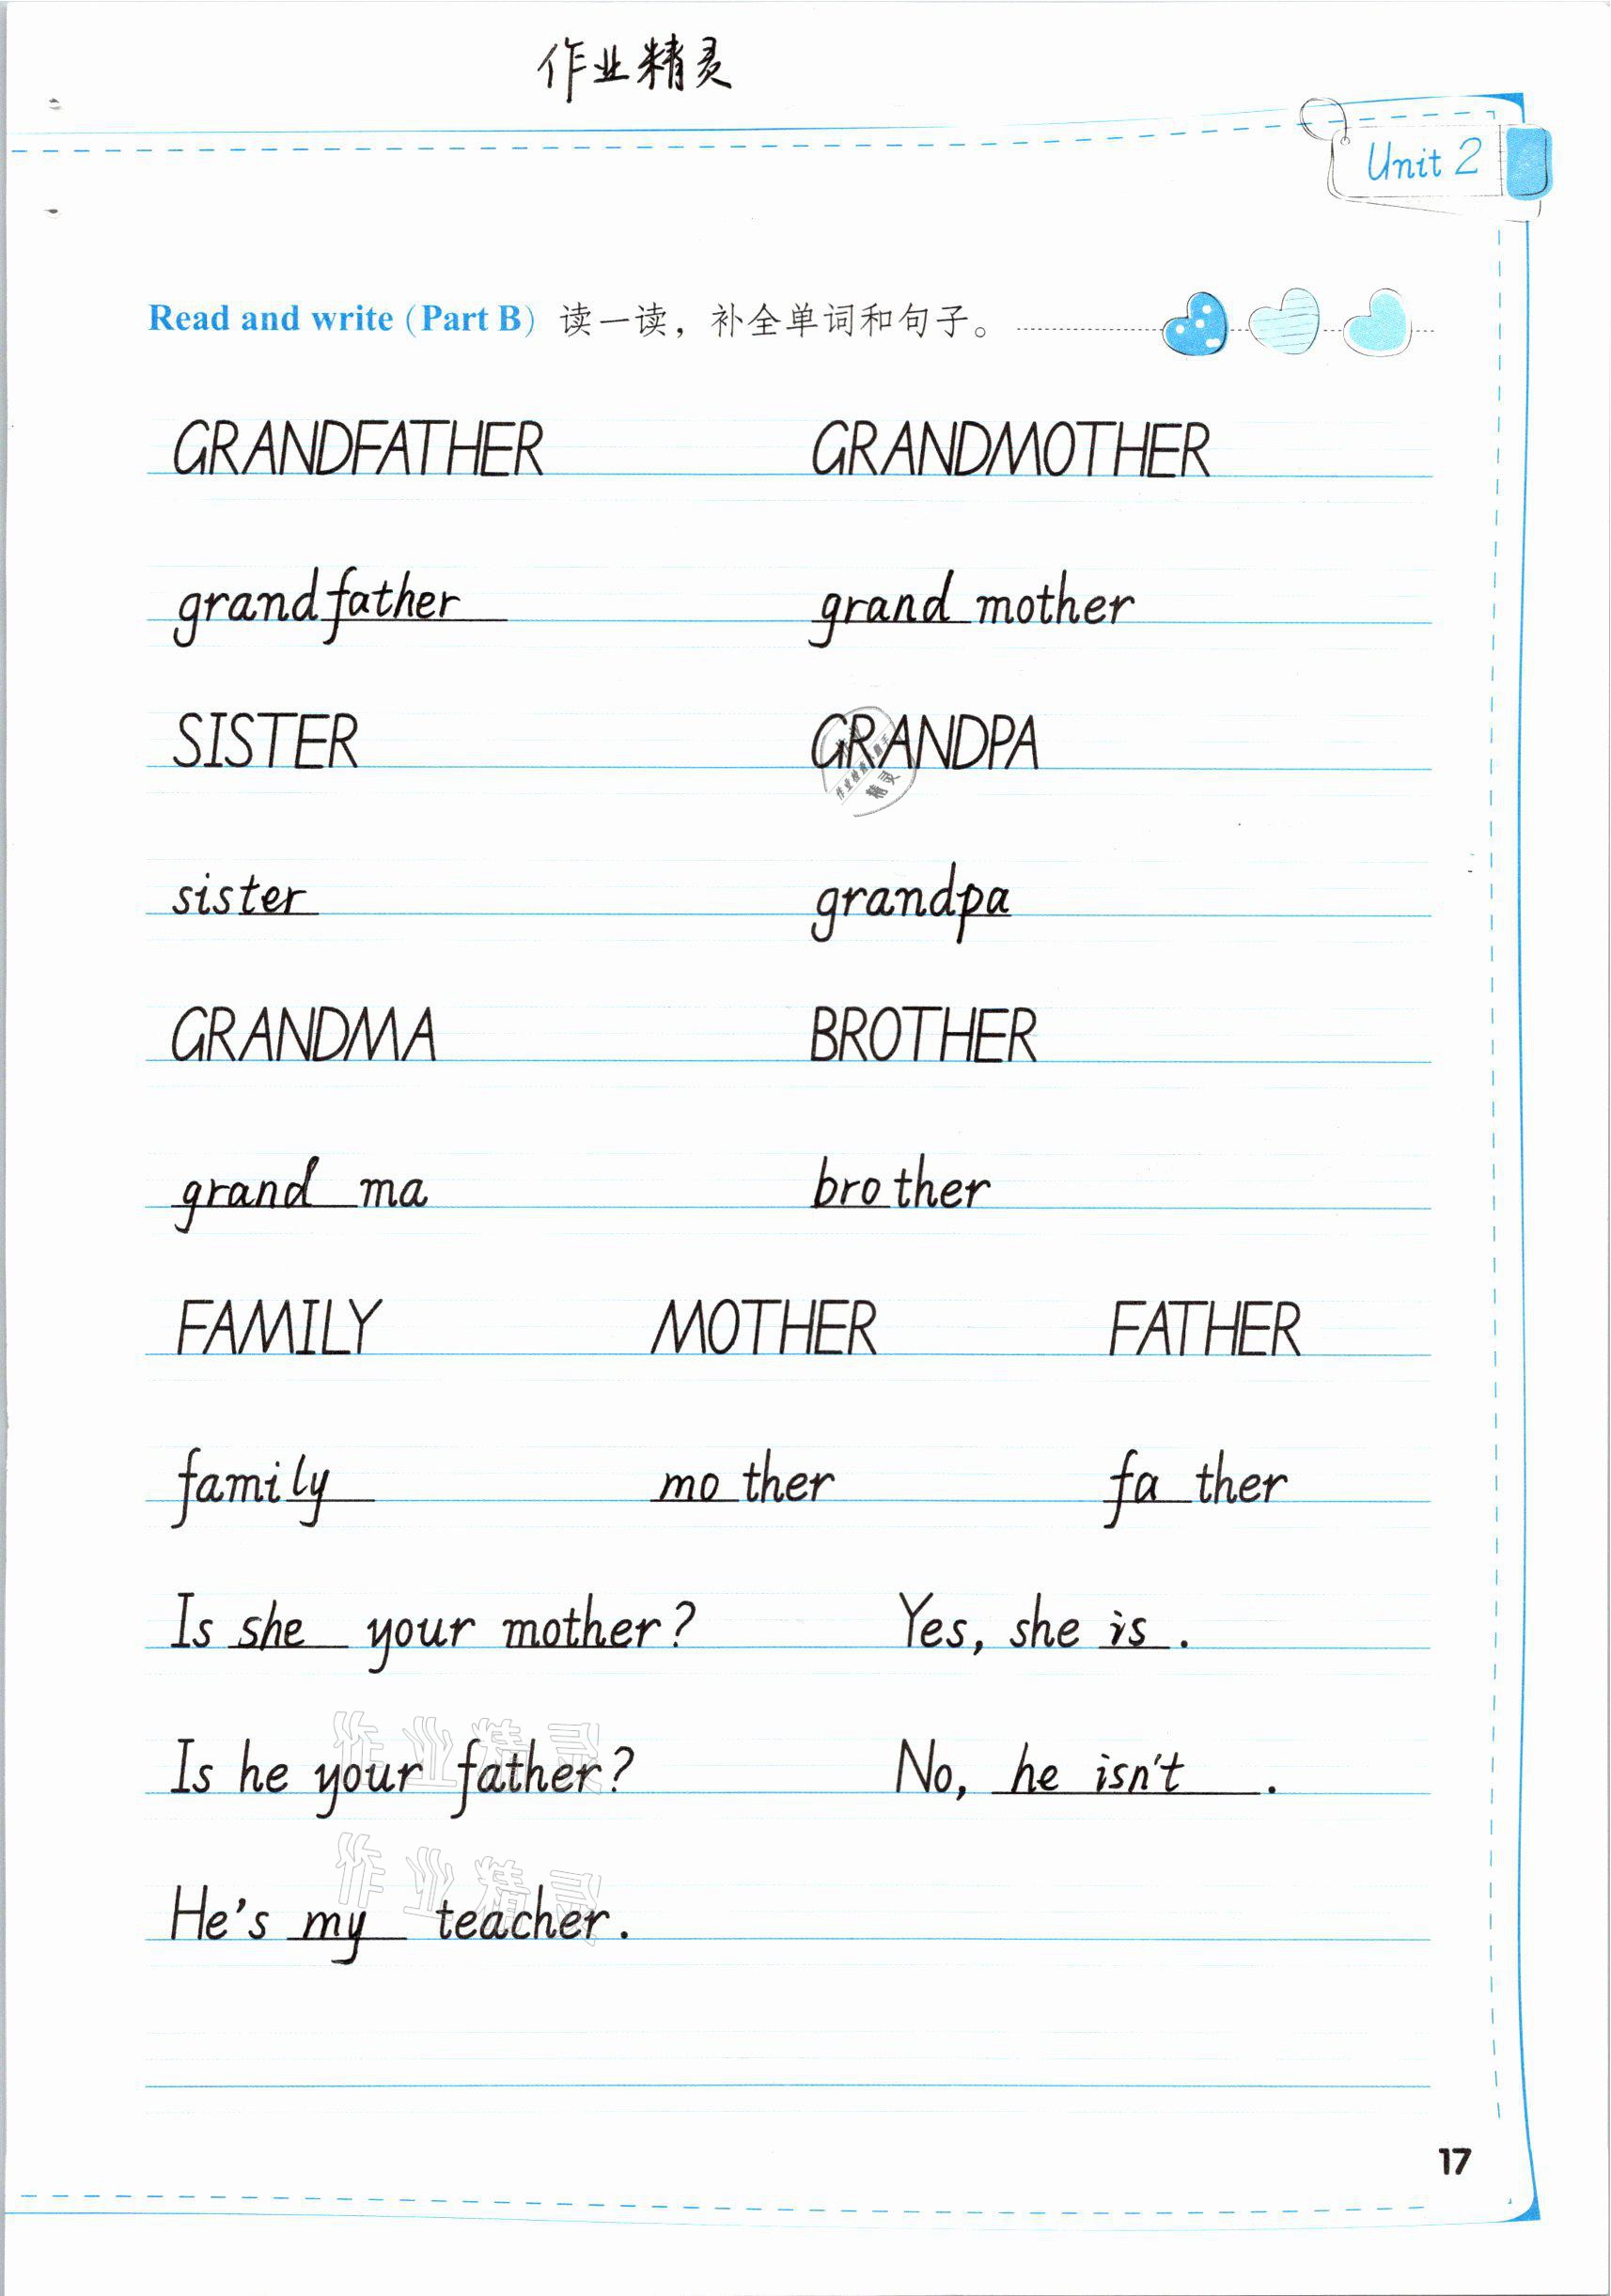 作业精灵
Unit 2
Read and write (Part B) 读一读，补全单词和句子。
GRANDFATHER GRANDMOTHER
grandfather grand mother
SISTER GRANDPA
sister grandpa
GRANDMA BROTHER
grand ma brother
FAMILY MOTHER FATHER
family mo ther fa ther
Is she your mother? Yes, she is.
Is he your father? No, he isn't.
作业精灵
He's my teacher.
作业精灵
17